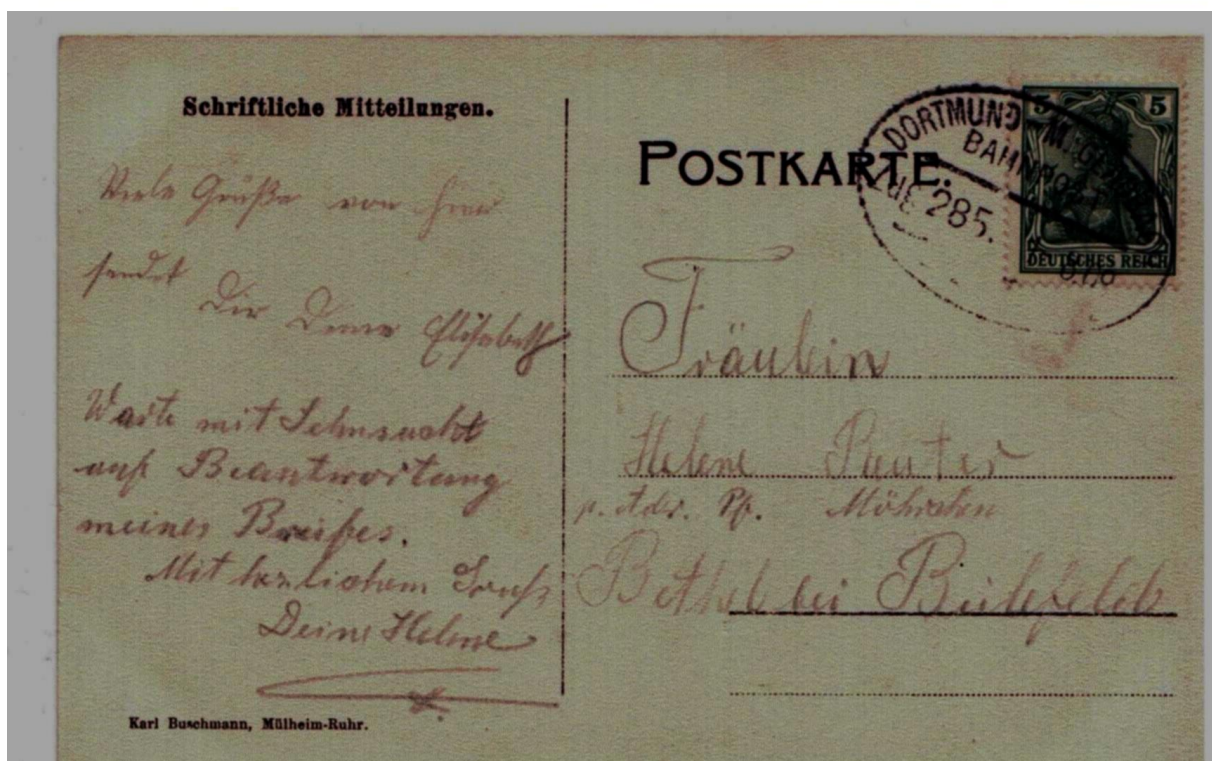 Schriftliche Mitteilungen.
Viele Grüße von hier
sendet
Dir Deine Elisabeth
Warte mit Sehnsucht
auf Beantwortung
meines Breifes.
Mit herzlichem Gruß
Deine Helene
Karl Buschmann, Mülheim-Ruhr.
POSTKARTE.
DORTMUND
BAHNPOST
ZUG 285.
5 5
DEUTSCHES REICH
Fräulein
Helene Reuter
p. Adr. Pf.
Bethel bei Bielefeld